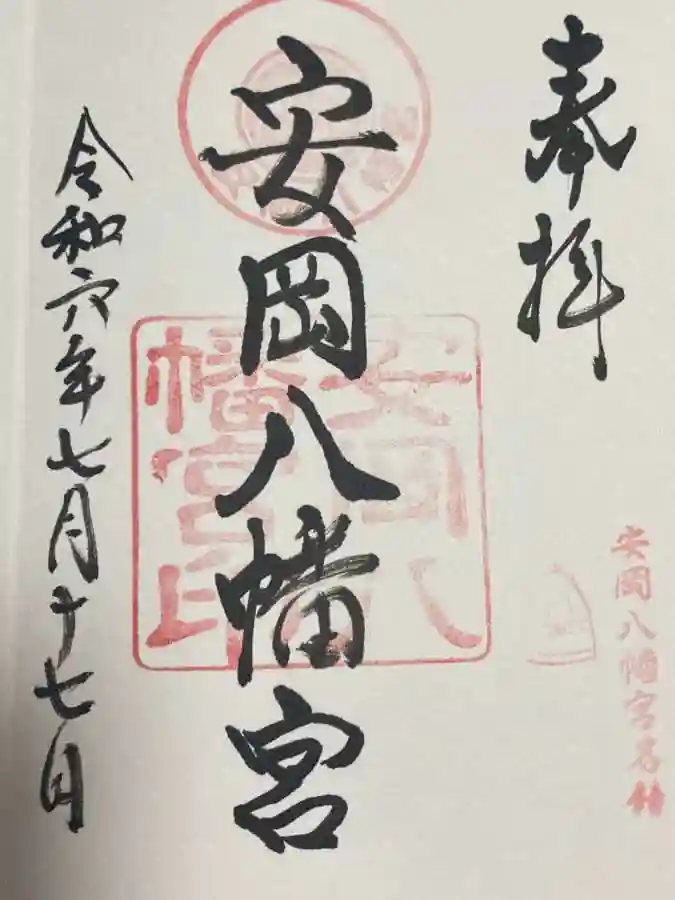 奉拝
安岡八幡宮名鐘
安岡八幡宮
安岡八幡宮印
令和六年七月十七日